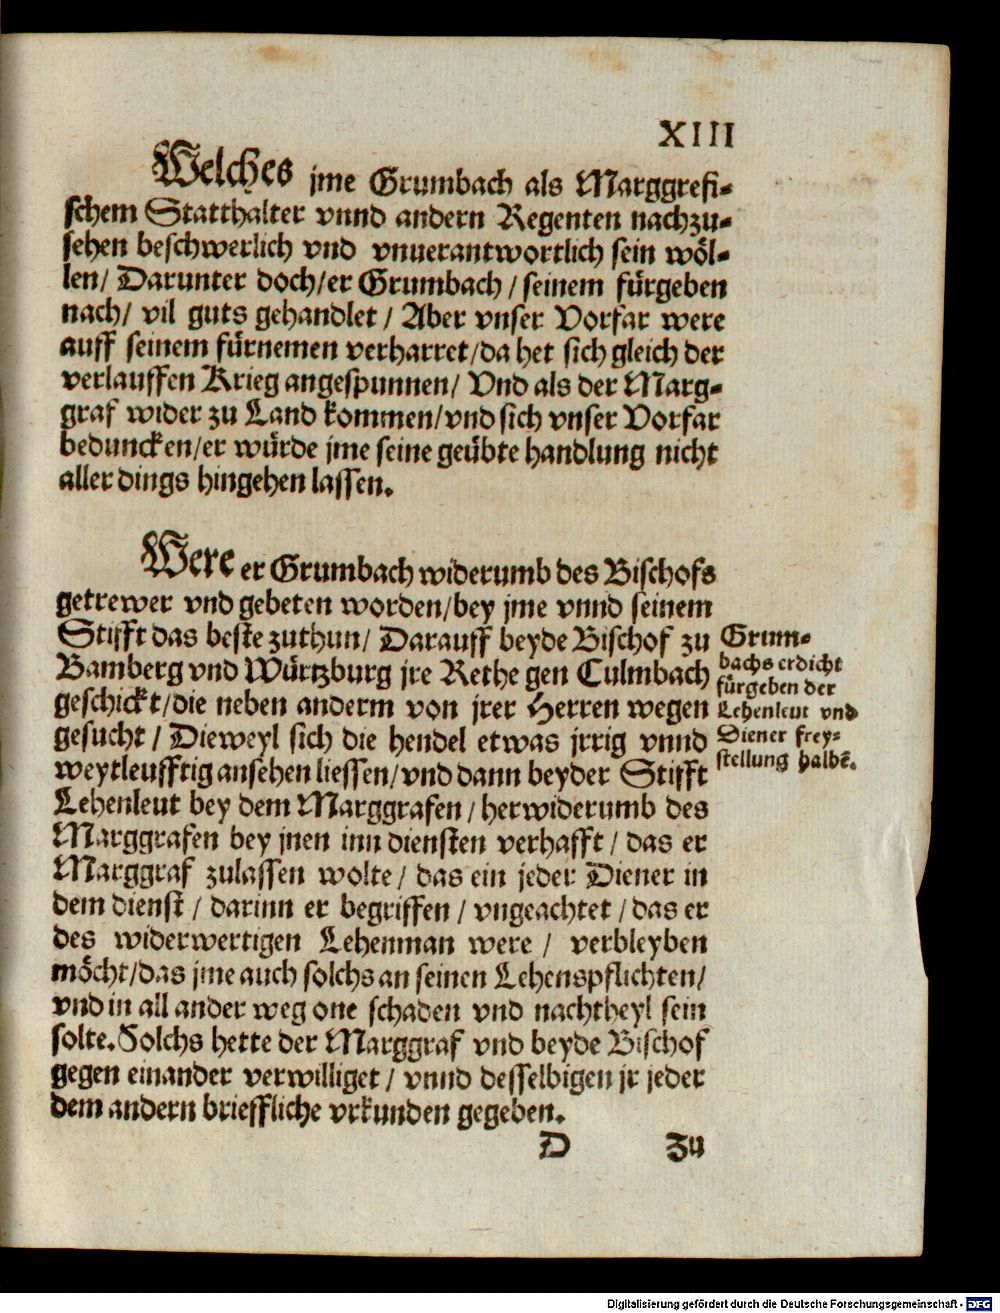 XIII
Welches jme Grumbach als Marggrefi-
schem Statthalter vnnd andern Regenten nachzu-
sehen beschwerlich vnd vnuerantwortlich sein wöl-
len/ Darunter doch/er Grumbach/ seinem fürgeben
nach/ vil guts gehandlet/ Aber vnser Vorfar were
auff seinem fürnemen verharret/da het sich gleich der
verlauffen Krieg angespunnen/ Vnd als der Marg-
graf wider zu Land kommen/vnd sich vnser Vorfar
beduncken/er würde jme seine geübte handlung nicht
aller dings hingehen lassen.
Were er Grumbach widerumb des Bischofs
getrewer vnd gebeten worden/bey jme vnnd seinem
Stifft das beste zuthun/ Darauff beyde Bischof zu
Bamberg vnd Würtzburg jre Rethe gen Culmbach
geschickt/die neben anderm von jrer Herren wegen
gesucht/ Dieweyl sich die hendel etwas jrrig vnnd
weytleufftig ansehen liessen/vnd dann beyder Stifft
Lehenleut bey dem Marggrafen/ herwiderumb des
Marggrafen bey jnen inn diensten verhafft/ das er
Marggraf zulassen wolte/ das ein jeder Diener in
dem dienst/ darinn er begriffen/ vngeachtet/ das er
des widerwertigen Lehenman were/ verbleyben
möcht/das jme auch solchs an seinen Lehenspflichten/
vnd in all ander weg one schaden vnd nachtheyl sein
solte. Solchs hette der Marggraf vnd beyde Bischof
gegen einander verwilliget/ vnnd desselbigen jr jeder
dem andern brieffliche vrkunden gegeben.
Grum-
bachs erdicht
fürgeben der
Lehenleut vnd
Diener frey-
stellung halbẽ.
D Zu
Digitalisierung gefördert durch die Deutsche Forschungsgemeinschaft - DFG